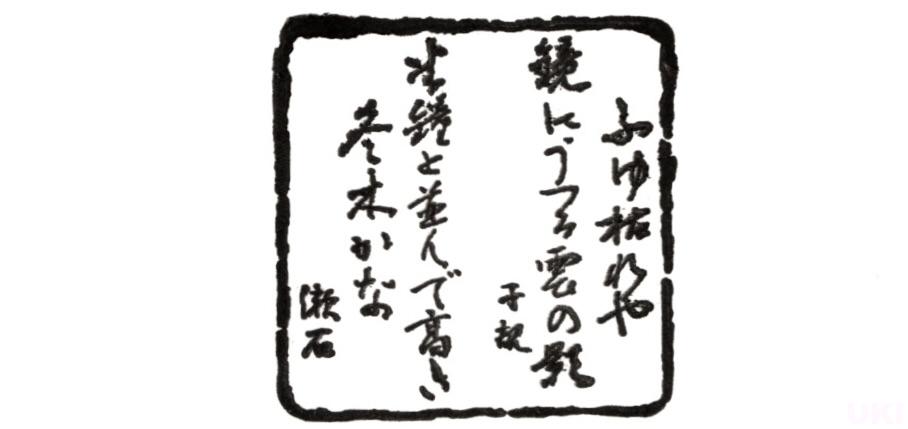 ふゆ枯れや
鏡にうつる雲の影
子規
半鐘と並んで高き
冬木かな
漱石
UKI